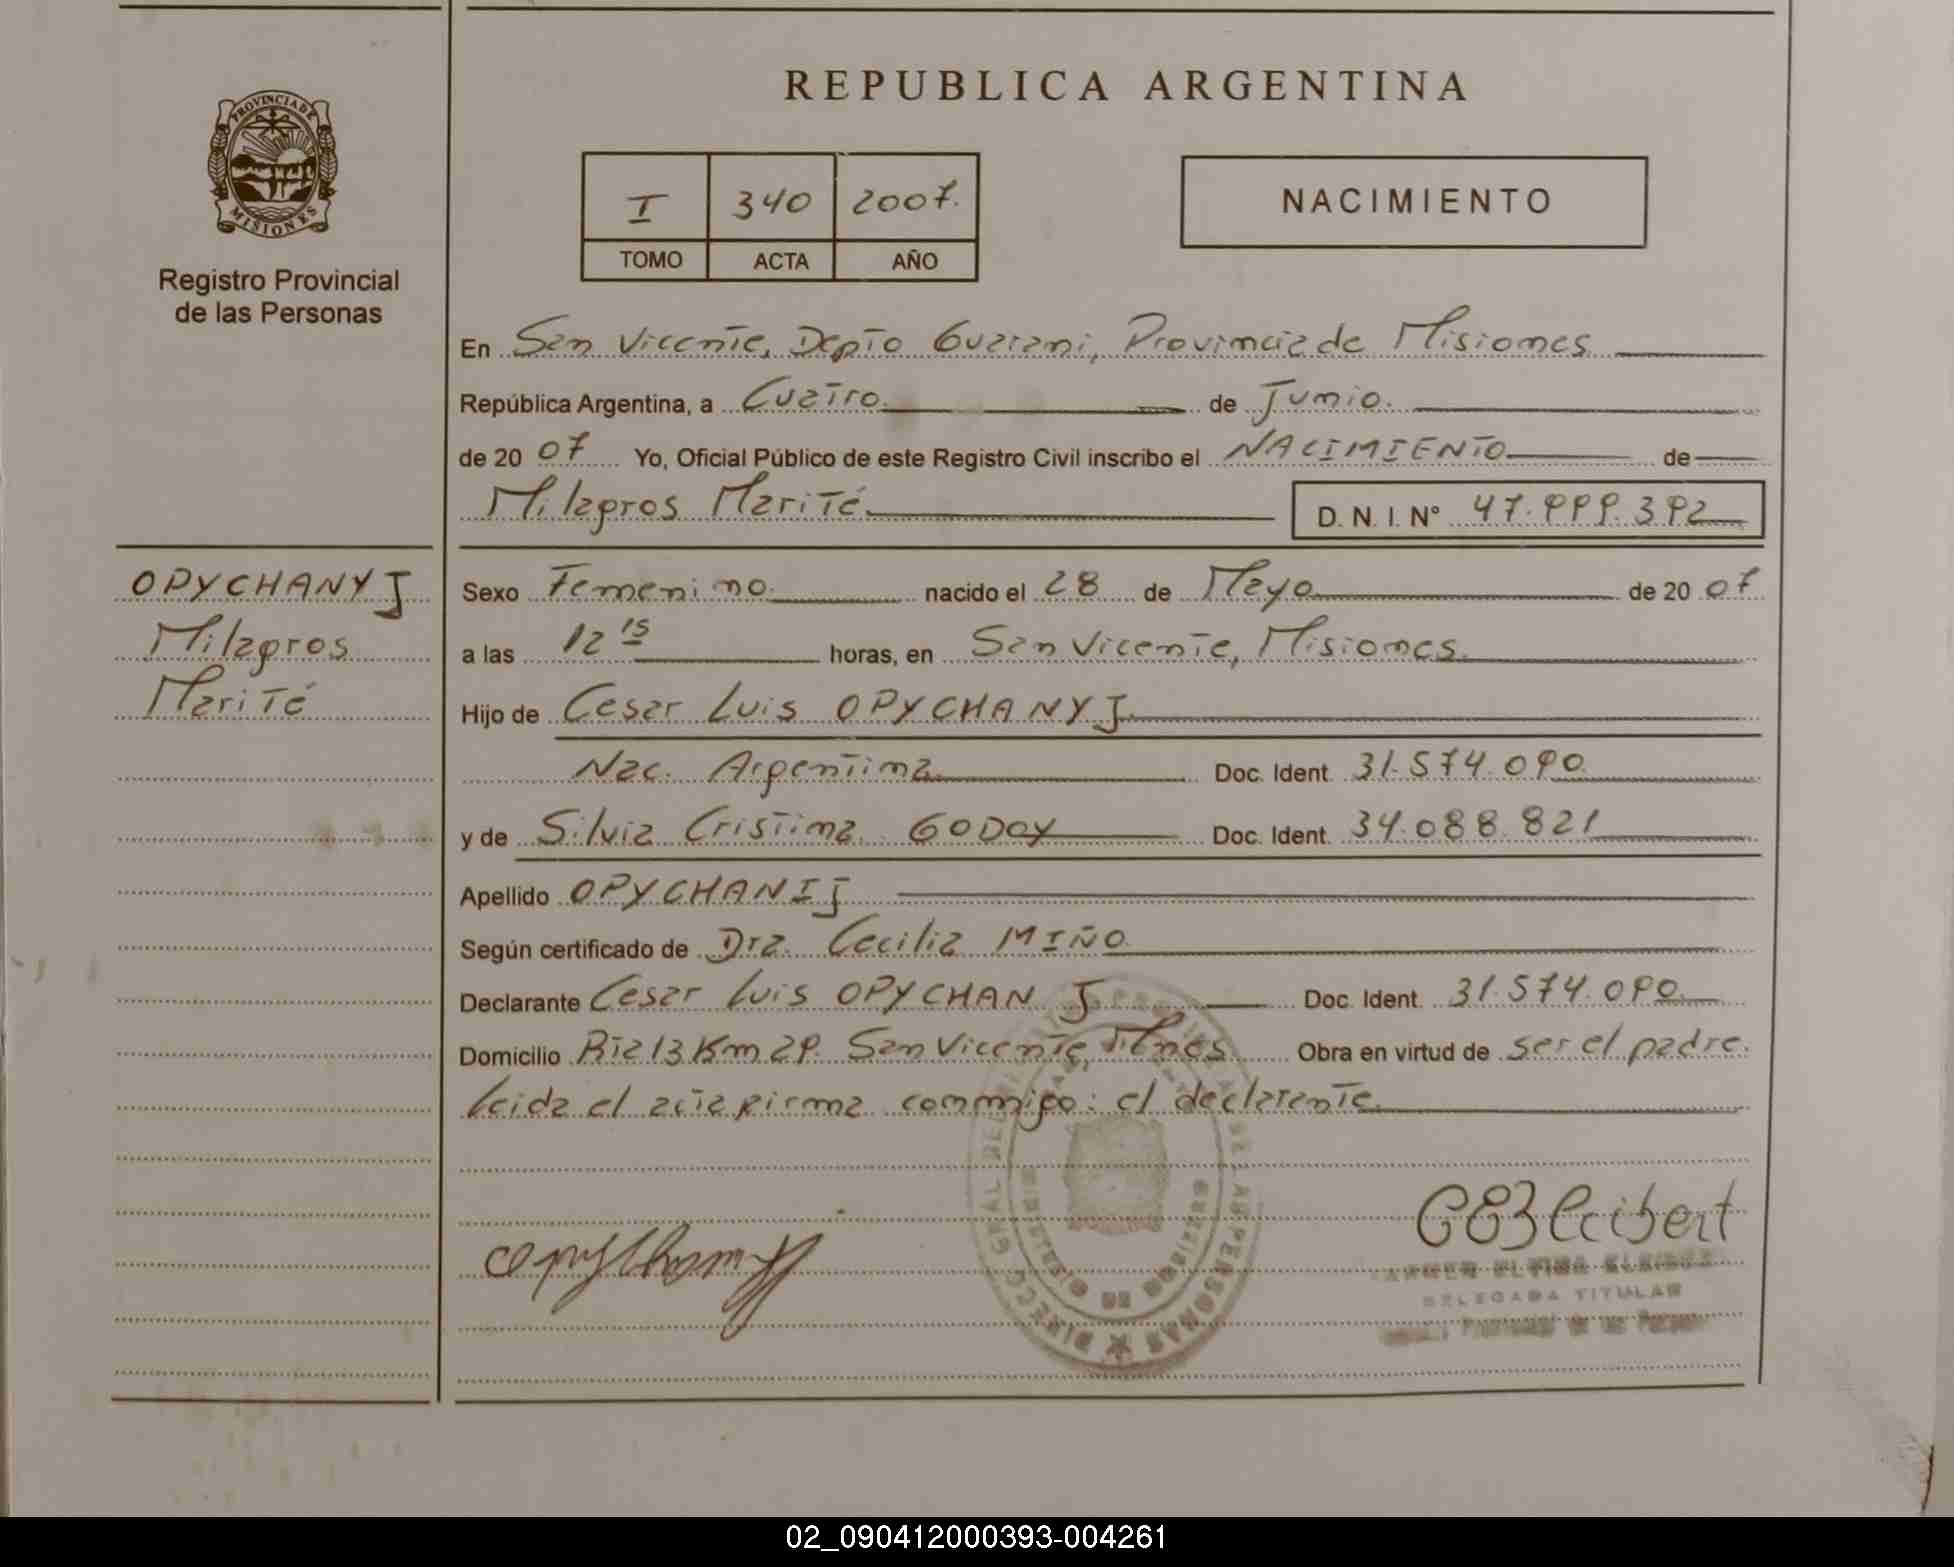 REPUBLICA ARGENTINA
PROVINCIA DE
MISIONES
Registro Provincial
de las Personas
I 340 2007.
TOMO ACTA AÑO
NACIMIENTO
En San Vicente, Depto Guarani, Provincia de Misiones
República Argentina, a Cuatro de Junio.
de 20 07 Yo, Oficial Público de este Registro Civil inscribo el NACIMIENTO de
Milagros Marité D. N. I. N° 47.999.392
OPYCHANYJ
Milagros
Marité
Sexo Femenino nacido el 28 de Mayo de 20 07
a las 12 15 horas, en San Vicente, Misiones.
Hijo de Cesar Luis OPYCHANYJ
Nac. Argentina Doc. Ident. 31.574.090
y de Silvia Cristina GODOY Doc. Ident. 34.088.821
Apellido OPYCHANIJ
Según certificado de Dra. Cecilia MIÑO
Declarante Cesar Luis OPYCHAN J Doc. Ident. 31.574.090
Domicilio Rta 13 Km 29. San Vicente, Mnes Obra en virtud de ser el padre.
Leida el acta firma conmigo: el declarante
DELEGADA TITULAR
02_090412000393-004261